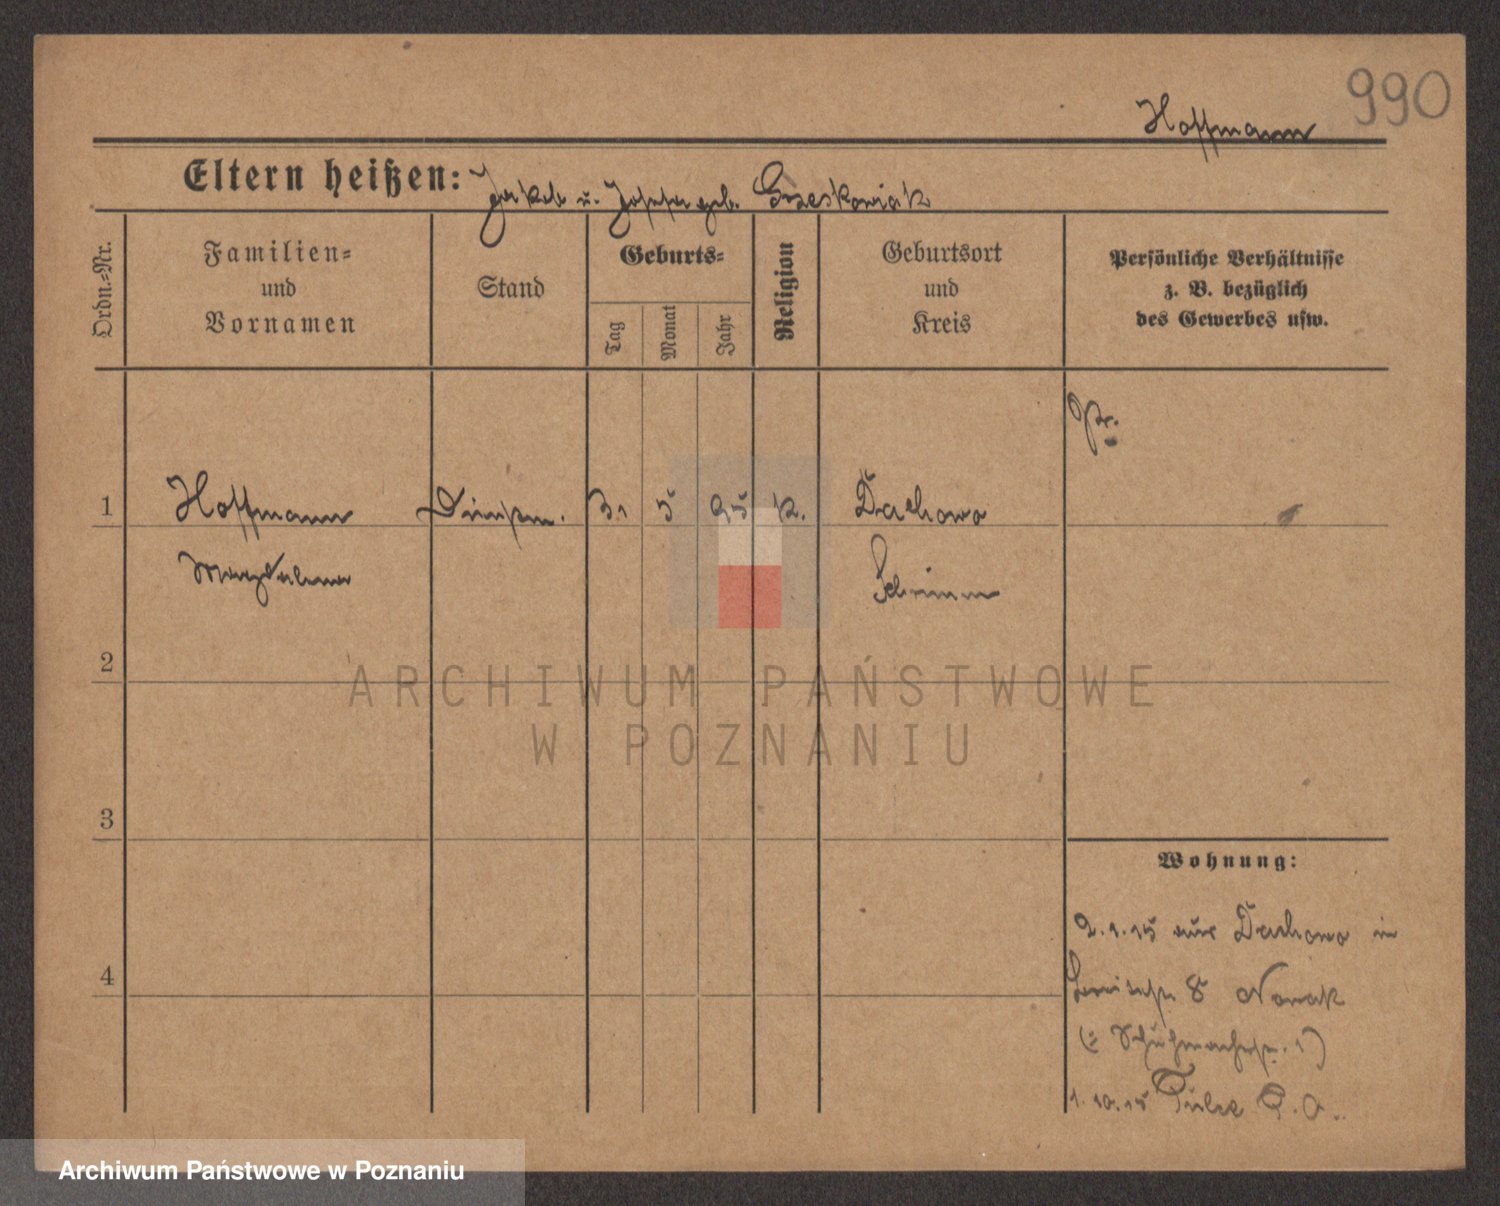 990
Hoffmann
Eltern heißen: Jakob u. Josefa geb. Grzeskowiak
Ordn.=Nr.
Familien=
und
Vornamen
Stand
Geburts=
Tag
Monat
Jahr
Religion
Geburtsort
und
Kreis
Persönliche Verhältnisse
z. B. bezüglich
des Gewerbes usw.
Pr.
1 Hoffmann Dienstm. 31 5 95 K. Dachowo
Magdalena Schrimm
2
ARCHIWUM PAŃSTWOWE
W POZNANIU
3
Wohnung:
2.1.15 aus Dachowo in
8 Nowak
4
(= Schuhmacherstr. 1)
1.10.15
Archiwum Państwowe w Poznaniu